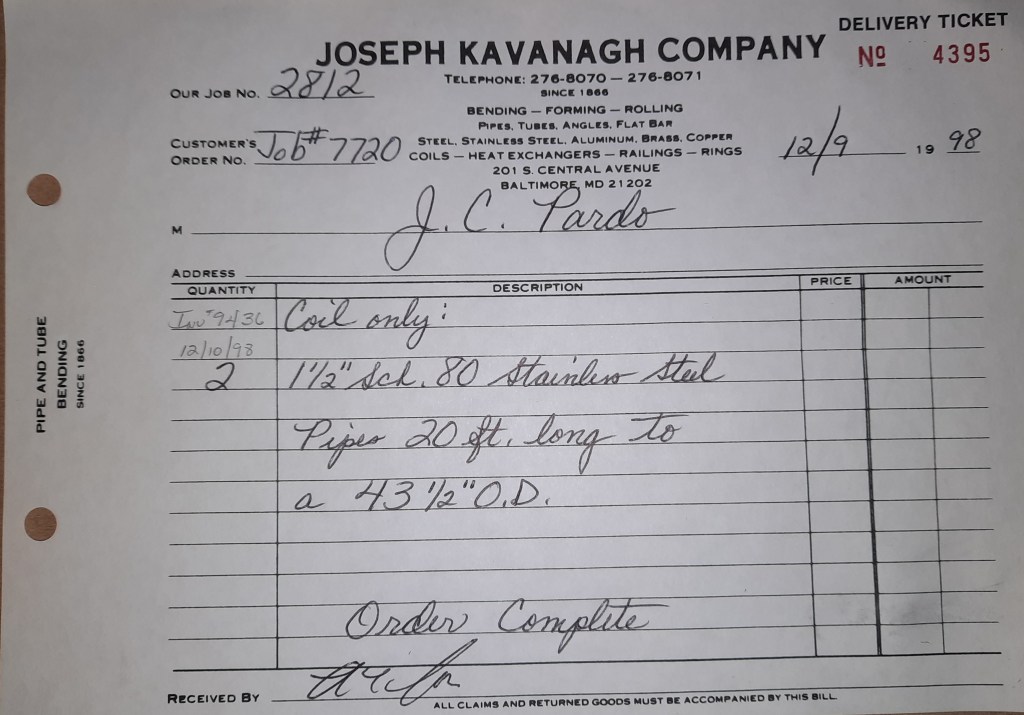 DELIVERY TICKET
JOSEPH KAVANAGH COMPANY
Nº 4395
TELEPHONE: 276-8070 — 276-8071
SINCE 1866
OUR JOB NO. 2812
BENDING — FORMING — ROLLING
PIPES, TUBES, ANGLES, FLAT BAR
CUSTOMER'S ORDER NO. Job# 7720
STEEL, STAINLESS STEEL, ALUMINUM, BRASS, COPPER
COILS — HEAT EXCHANGERS — RAILINGS — RINGS
12/9 19 98
201 S. CENTRAL AVENUE
BALTIMORE, MD 21202
M J. C. Pardo
ADDRESS
QUANTITY DESCRIPTION PRICE AMOUNT
Inv# 9436 Coil only:
12/10/98
2 1 1/2" Sch. 80 Stainless Steel
Pipes 20 ft. long to
a 43 1/2" O.D.
Order Complete
RECEIVED BY
ALL CLAIMS AND RETURNED GOODS MUST BE ACCOMPANIED BY THIS BILL
PIPE AND TUBE
BENDING
SINCE 1866